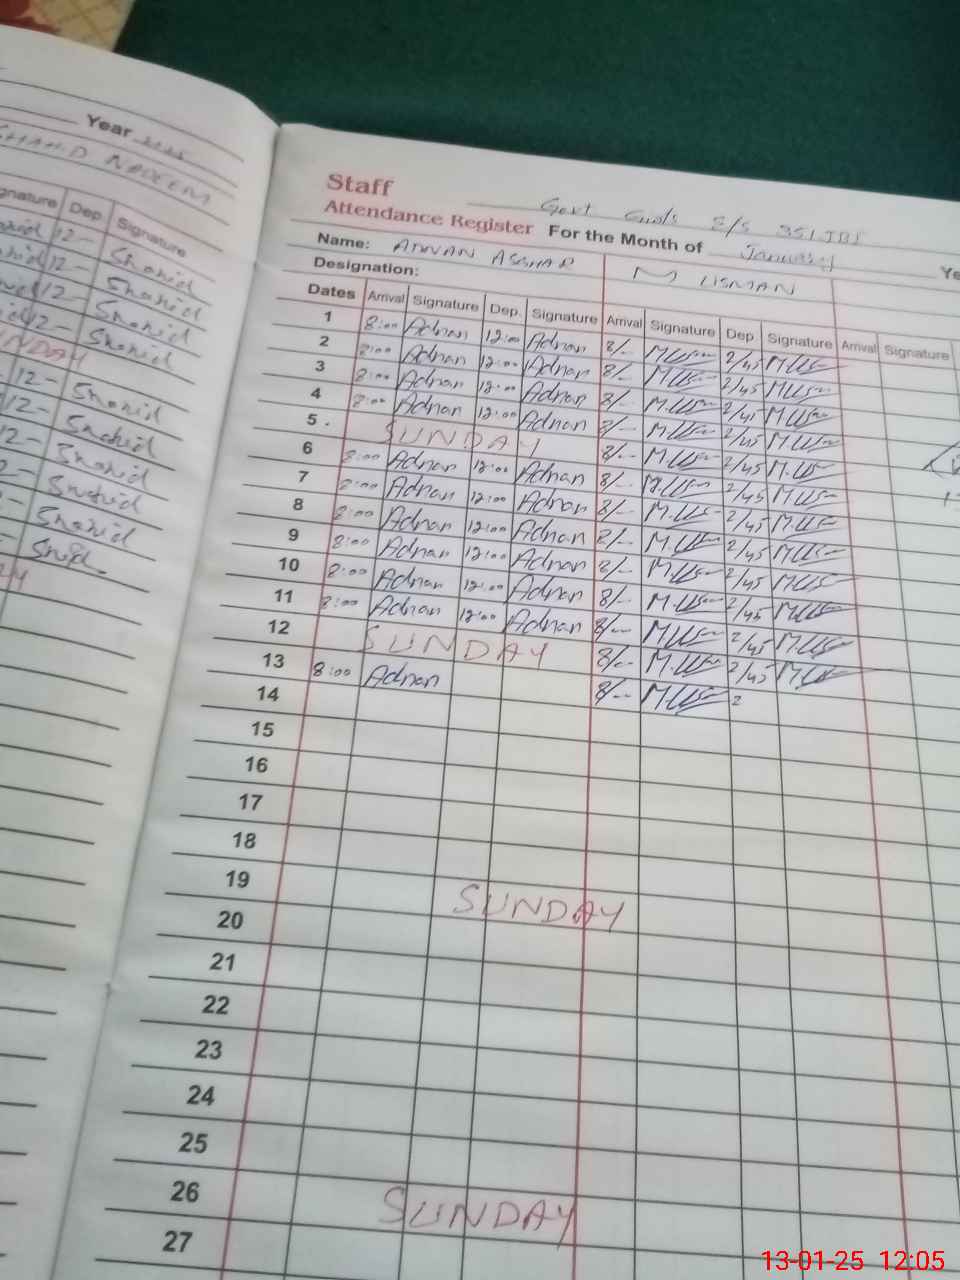 Year 2025
SHAHID NADEEM
gnature Dep. Signature
12- Shahid
12- Shahid
12- Shahid
12- Shahid
SUNDAY
12- Shahid
12- Shahid
12- Shahid
Shahid
Shahid
Staff
Attendance Register For the Month of January
Govt 351 JB
Name: ADNAN ASGHAR M USMAN
Designation:
Dates Arrival Signature Dep. Signature Arrival Signature Dep. Signature Arrival Signature
1 8:00 Adnan 12:00 Adnan 8/-- M.Us 2/45 M.Us
2 8:00 Adnan 12:00 Adnan 8/-- M.Us 2/45 M.Us
3 8:00 Adnan 12:00 Adnan 8/-- M.Us 2/45 M.Us
4 8:00 Adnan 12:00 Adnan 8/-- M.Us 2/45 M.Us
5 SUNDAY 8/-- M.Us 2/45 M.Us
6 8:00 Adnan 12:00 Adnan 8/-- M.Us 2/45 M.Us
7 8:00 Adnan 12:00 Adnan 8/-- M.Us 2/45 M.Us
8 8:00 Adnan 12:00 Adnan 8/-- M.Us 2/45 M.Us
9 8:00 Adnan 12:00 Adnan 8/-- M.Us 2/45 M.Us
10 8:00 Adnan 12:00 Adnan 8/-- M.Us 2/45 M.Us
11 8:00 Adnan 12:00 Adnan 8/-- M.Us 2/45 M.Us
12 SUNDAY 8/-- M.Us 2/45 M.Us
13 8:00 Adnan 8/-- M.Us 2
14
15
16
17
18
19 SUNDAY
20
21
22
23
24
25
26 SUNDAY
27
13-01-25 12:05